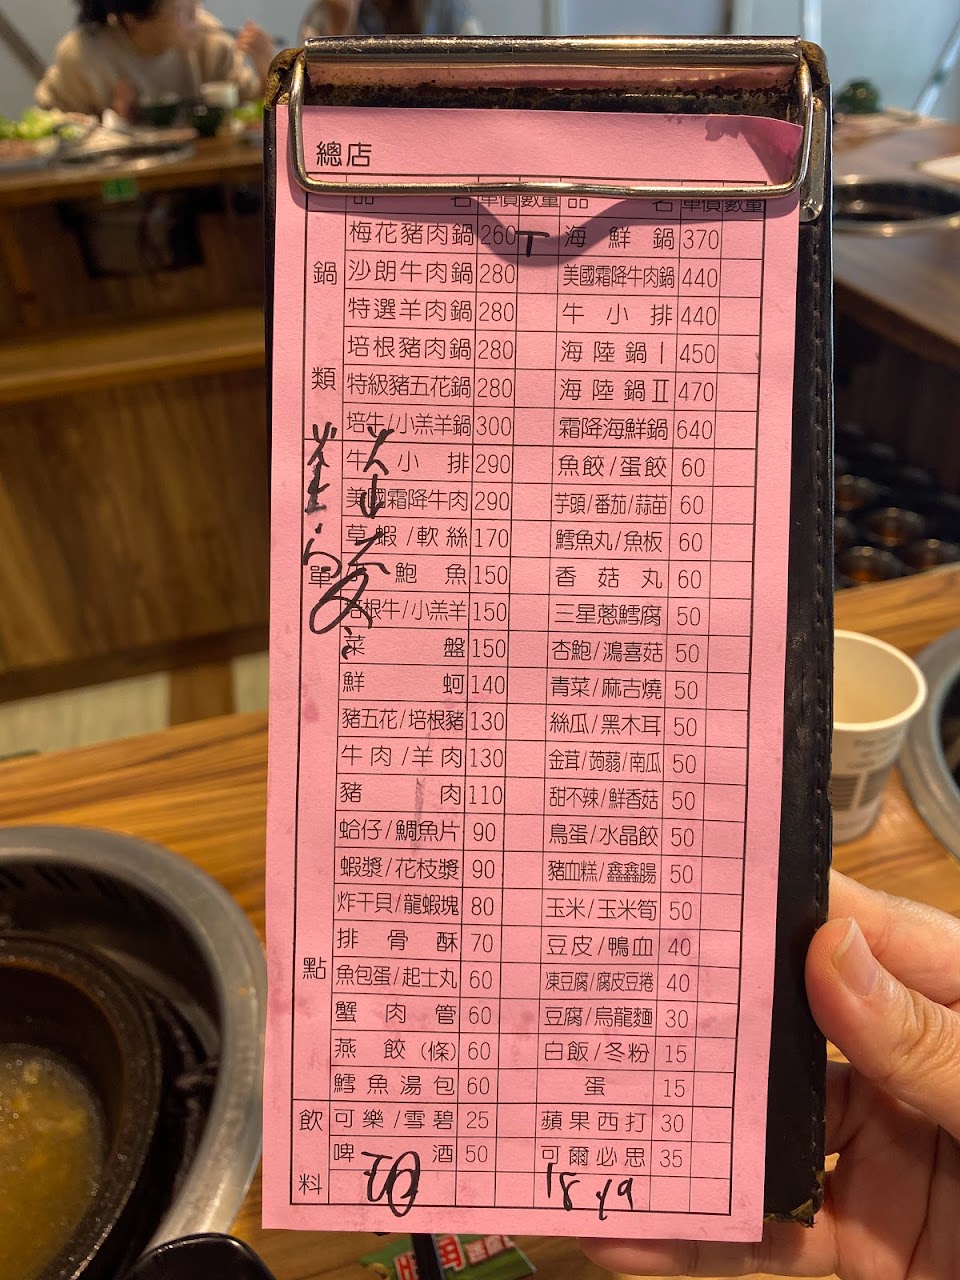 總店
品 名 單價 數量 品 名 單價 數量
鍋類
梅花豬肉鍋 260 T 海鮮鍋 370
沙朗牛肉鍋 280 美國霜降牛肉鍋 440
特選羊肉鍋 280 牛小排 440
培根豬肉鍋 280 海陸鍋Ⅰ 450
特級豬五花鍋 280 海陸鍋Ⅱ 470
培牛/小羔羊鍋 300 霜降海鮮鍋 640
單點
牛小排 290 魚餃/蛋餃 60
美國霜降牛肉 290 芋頭/番茄/蒜苗 60
草蝦/軟絲 170 鱈魚丸/魚板 60
鮑魚 150 香菇丸 60
培根牛/小羔羊 150 三星蔥鱈腐 50
菜盤 150 杏鮑/鴻喜菇 50
鮮蚵 140 青菜/麻吉燒 50
豬五花/培根豬 130 絲瓜/黑木耳 50
牛肉/羊肉 130 金茸/蒟蒻/南瓜 50
豬肉 110 甜不辣/鮮香菇 50
蛤仔/鯛魚片 90 鳥蛋/水晶餃 50
蝦漿/花枝漿 90 豬血糕/鑫鑫腸 50
炸干貝/龍蝦塊 80 玉米/玉米筍 50
排骨酥 70 豆皮/鴨血 40
魚包蛋/起士丸 60 凍豆腐/腐皮豆捲 40
蟹肉管 60 豆腐/烏龍麵 30
燕餃(條) 60 白飯/冬粉 15
鱈魚湯包 60 蛋 15
飲料
可樂/雪碧 25 蘋果西打 30
啤酒 50 可爾必思 35